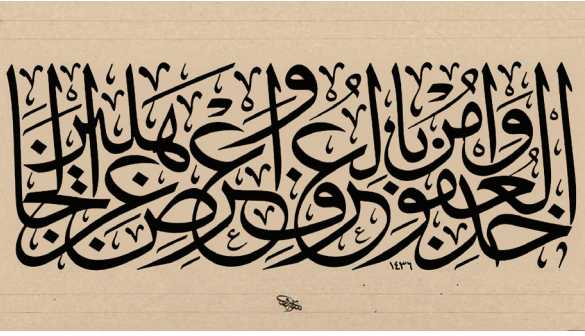 خُذِ الْعَفْوَ وَأْمُرْ بِالْعُرْفِ وَأَعْرِضْ عَنِ الْجَاهِلِينَ
١٤٣٦